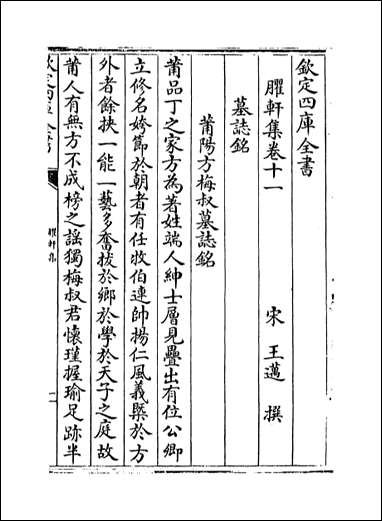 欽定四庫全書
臞軒集卷十一
宋 王邁 撰
墓誌銘
莆陽方梅叔墓誌銘
莆品丁之家方為著姓端人紳士層見疊出有位公卿
立修名姱節於朝者有任牧伯連帥揚仁風義槩於方
外者餘挾一能一藝多奮拔於鄉於學於天子之庭故
莆人有無方不成榜之謡獨梅叔君懷瑾握瑜足跡半
臞軒集